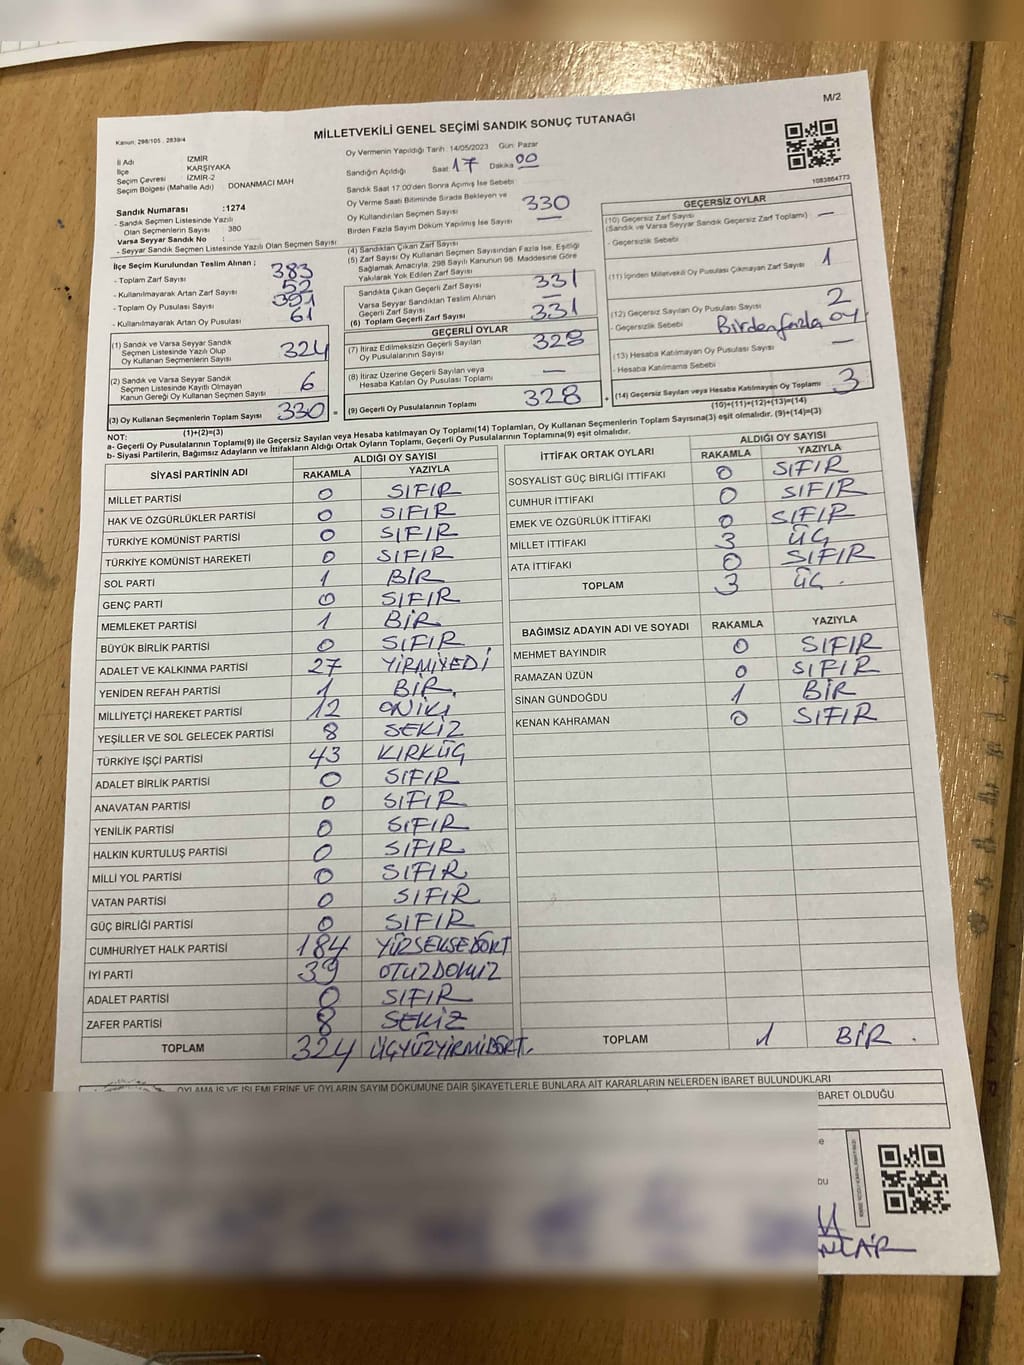 M/2
Kanun: 298/105 , 2839/4
MİLLETVEKİLİ GENEL SEÇİMİ SANDIK SONUÇ TUTANAĞI
1083864773
İl Adı İZMİR
İlçe KARŞIYAKA
Seçim Çevresi İZMİR-2
Seçim Bölgesi (Mahalle Adı) DONANMACI MAH
Sandık Numarası :1274
- Sandık Seçmen Listesinde Yazılı
Olan Seçmenlerin Sayısı 380
Varsa Seyyar Sandık No :
- Seyyar Sandık Seçmen Listesinde Yazılı Olan Seçmen Sayısı
İlçe Seçim Kurulundan Teslim Alınan ;
- Toplam Zarf Sayısı 383
- Kullanılmayarak Artan Zarf Sayısı 52
- Toplam Oy Pusulası Sayısı
- Kullanılmayarak Artan Oy Pusulası 61
(1) Sandık ve Varsa Seyyar Sandık
Seçmen Listesinde Yazılı Olup
Oy Kullanan Seçmenlerin Sayısı 324
(2) Sandık ve Varsa Seyyar Sandık
Seçmen Listesinde Kayıtlı Olmayan
Kanun Gereği Oy Kullanan Seçmen Sayısı 6
(3) Oy Kullanan Seçmenlerin Toplam Sayısı 330 =
(1)+(2)=(3)
Oy Vermenin Yapıldığı Tarih : 14/05/2023 Gün: Pazar
Sandığın Açıldığı Saat 17 Dakika 00
Sandık Saat 17:00'den Sonra Açımış İse Sebebi
Oy Verme Saati Bitiminde Sırada Bekleyen ve
Oy Kullandırılan Seçmen Sayısı 330
Birden Fazla Sayım Döküm Yapılmış İse Sayısı —
(4) Sandıktan Çıkan Zarf Sayısı
(5) Zarf Sayısı Oy Kullanan Seçmen Sayısından Fazla İse, Eşitliği
Sağlamak Amacıyla, 298 Sayılı Kanunun 98. Maddesine Göre
Yakılarak Yok Edilen Zarf Sayısı
Sandıkta Çıkan Geçerli Zarf Sayısı 331
Varsa Seyyar Sandıktan Teslim Alınan
Geçerli Zarf Sayısı —
(6) Toplam Geçerli Zarf Sayısı 331
GEÇERLİ OYLAR
(7) İtiraz Edilmeksizin Geçerli Sayılan
Oy Pusulalarının Sayısı 328
(8) İtiraz Üzerine Geçerli Sayılan veya
Hesaba Katılan Oy Pusulası Toplamı —
(9) Geçerli Oy Pusulalarının Toplamı 328 +
GEÇERSİZ OYLAR
(10) Geçersiz Zarf Sayısı
(Sandık ve Varsa Seyyar Sandık Geçersiz Zarf Toplamı) —
- Geçersizlik Sebebi
(11) İçinden Milletvekili Oy Pusulası Çıkmayan Zarf Sayısı 1
(12) Geçersiz Sayılan Oy Pusulası Sayısı 2
- Geçersizlik Sebebi Birden fazla oy.
(13) Hesaba Katılmayan Oy Pusulası Sayısı —
- Hesaba Katılmama Sebebi
(14) Geçersiz Sayılan veya Hesaba Katılmayan Oy Toplamı 3
(10)+(11)+(12)+(13)=(14)
NOT:
a- Geçerli Oy Pusulalarının Toplamı(9) ile Geçersiz Sayılan veya Hesaba katılmayan Oy Toplamı(14) Toplamları, Oy Kullanan Seçmenlerin Toplam Sayısına(3) eşit olmalıdır. (9)+(14)=(3)
b- Siyasi Partilerin, Bağımsız Adayların ve İttifakların Aldığı Ortak Oyların Toplamı, Geçerli Oy Pusulalarının Toplamına(9) eşit olmalıdır.
SİYASİ PARTİNİN ADI ALDIĞI OY SAYISI
RAKAMLA YAZIYLA
MİLLET PARTİSİ 0 SIFIR
HAK VE ÖZGÜRLÜKLER PARTİSİ 0 SIFIR
TÜRKİYE KOMÜNİST PARTİSİ 0 SIFIR
TÜRKİYE KOMÜNİST HAREKETİ 0 SIFIR
SOL PARTİ 1 BİR
GENÇ PARTİ 0 SIFIR
MEMLEKET PARTİSİ 1 BİR
BÜYÜK BİRLİK PARTİSİ 0 SIFIR
ADALET VE KALKINMA PARTİSİ 27 YİRMİYEDİ
YENİDEN REFAH PARTİSİ 1 BİR
MİLLİYETÇİ HAREKET PARTİSİ 12 ONİKİ
YEŞİLLER VE SOL GELECEK PARTİSİ 8 SEKİZ
TÜRKİYE İŞÇİ PARTİSİ 43 KIRKÜÇ
ADALET BİRLİK PARTİSİ 0 SIFIR
ANAVATAN PARTİSİ 0 SIFIR
YENİLİK PARTİSİ 0 SIFIR
HALKIN KURTULUŞ PARTİSİ 0 SIFIR
MİLLİ YOL PARTİSİ 0 SIFIR
VATAN PARTİSİ 0 SIFIR
GÜÇ BİRLİĞİ PARTİSİ 0 SIFIR
CUMHURİYET HALK PARTİSİ 184 YÜRSEKSEDÖRT
İYİ PARTİ 39 OTUZDOKUZ
ADALET PARTİSİ 0 SIFIR
ZAFER PARTİSİ 8 SEKİZ
TOPLAM 324 ÜÇYÜZYİRMİDÖRT.
İTTİFAK ORTAK OYLARI ALDIĞI OY SAYISI
RAKAMLA YAZIYLA
SOSYALİST GÜÇ BİRLİĞİ İTTİFAKI 0 SIFIR
CUMHUR İTTİFAKI 0 SIFIR
EMEK VE ÖZGÜRLÜK İTTİFAKI 0 SIFIR
MİLLET İTTİFAKI 3 ÜÇ
ATA İTTİFAKI 0 SIFIR
TOPLAM 3 ÜÇ.
BAĞIMSIZ ADAYIN ADI VE SOYADI RAKAMLA YAZIYLA
MEHMET BAYINDIR 0 SIFIR
RAMAZAN ÜZÜN 0 SIFIR
SİNAN GÜNDOĞDU 1 BİR
KENAN KAHRAMAN 0 SIFIR
TOPLAM 1 BİR .
OYLAMA İŞ VE İŞLEMLERİNE VE OYLARIN SAYIM DÖKÜMÜNE DAİR ŞİKAYETLERLE BUNLARA AİT KARARLARIN NELERDEN İBARET BULUNDUKLARI
BARET OLDUĞU